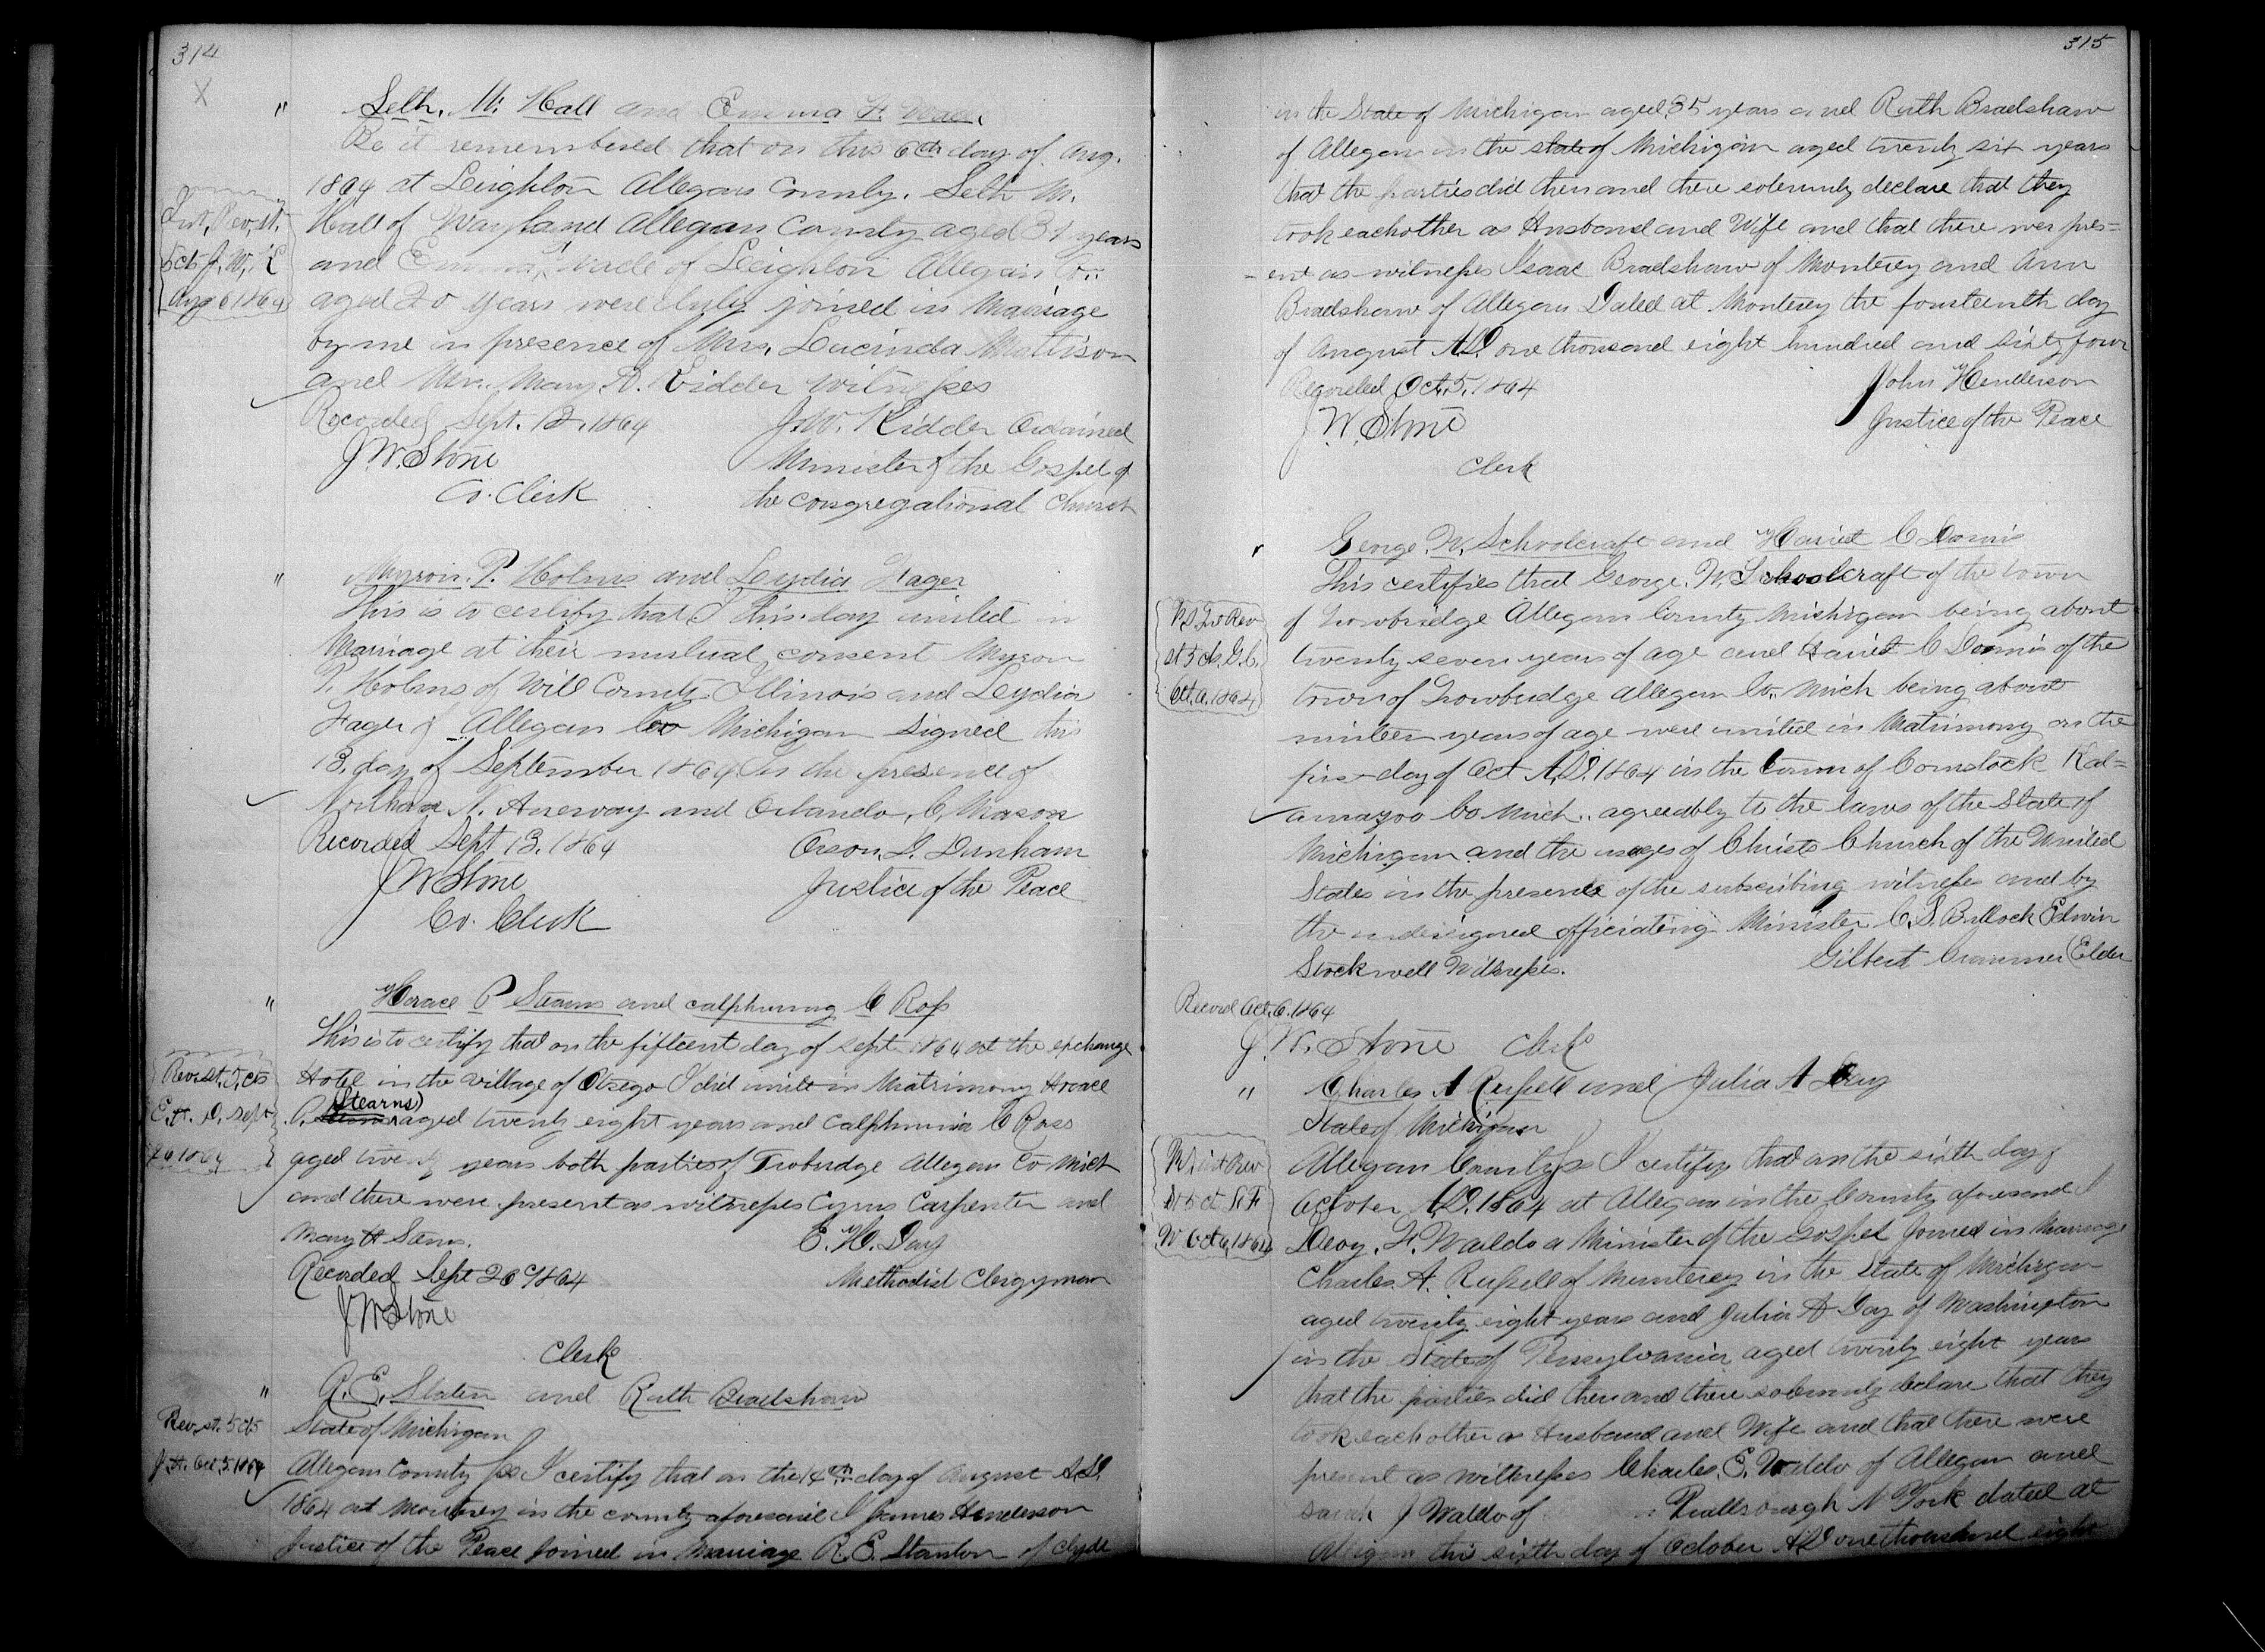 314
X
" Seth. M. Hall and Emma F. Wade.
Be it remembered that on this 6th day of Aug.
1864 at Leighton Allegan County. Seth M.
Int. Rev. st. 5 cts J. W. K Aug 6 1864
Hall of Wayland Allegan County aged 31 years
and Emma F. Wade of Leighton Allegan Co.
aged 20 years were duly joined in Marriage
by me in presence of Mrs. Lucinda Mattison
and Mrs. Mary D. Kidder witnesses
Recorded Sept. 12. 1864 J. W. Kidder Ordained
J. W. Stone Minister of the Gospel of
Co. Clerk the congregational Church
" Myron. P. Holms and Leydia Hager
This is to certify that I this day united in
Marriage at their mutual consent Myron
P. Holms of Will County Illinois and Leydia
Hager of Allegan Co Michigan Signed this
13. day of September 1864 in the presence of
N. and Orlando. C. Mason
Recorded Sept 13. 1864 Orson. D. Dunham
J W Stone Justice of the Peace
Co. Clerk
" Horace P Stearns and calphurnia C Ross
This is to certify that on the fifteent day of sept 1864 at the exchange
Rev. st. 5 cts E. H. D. Sept
Hotel in the village of Otsego I did unite in Matrimony Horace
P. Stearns (Stearns) aged twenty eight years and Calphurnia C Ross
aged twenty years both parties of Trobridge Allegan Co Mich
and there were present as witnesses Cyrus Carpenter and
Mary H Sterns. E. H. Day
Recorded Sept 26 1864 Methodist Clergyman
J W Stone
Clerk
" R. E. Staten and Ruth Bradshaw
Rev. st. 5 cts J. H. Oct. 5. 1864
State of Michigan
Allegan County ss I certify that on the 14th day of August A.D.
1864 at Monterey in the county aforesaid I James Henderson
Justice of the Peace Joined in Marriage R. E. Stanton of Clyde
315
in the State of Michigan aged 35 years and Ruth Bradshaw
of Allegan in the state of Michigan aged twenty six years
that the parties did then and there solemnly declare that they
took eachother as Husband and Wife and that there wer pres=
=ent as witnesses Isaac Bradshaw of Monterey and Ann
Bradshaw of Allegan Dated at Monterey the fourteenth day
of August A.D. one thousand eight hundred and Sixty four
Recorded Oct. 5. 1864 John Henderson
J. W. Stone Justice of the Peace
Clerk
" George. W. Schoolcraft and Hariet C Dannis
This certifies that George. W. Schoolcraft of the town
U S In Rev st 5 cts. G. C. Oct. 6. 1864
of Trowbridge Allegan County Michigan being about
twenty seven years of age and Hariet C Dannis of the
town of Trowbridge Allegan Co. Mich being about
ninteen years of age were united in Matrimony on the
firs day of Oct A.D. 1864 in the town of Comstock Kal=
amazoo Co Mich. agreeably to the laws of the State of
Michigan and the usages of Christs Church of the United
States in the presence of the subscribing witnesses and by
the undersigned officiating Minister C. S. Bullock Edwin
Stockwell Witnesses. Gilbert Crammer (Elder
Record Oct. 6. 1864
J. W. Stone Clerk
" Charles A Russell and Julia A Gay
State of Michigan
U S int Rev st 5 ct L F W Oct 6, 1864
Allegan County ss I certify that on the sixth day of
October A.D. 1864 at Allegan in the County aforesaid I
Leroy. F. Waldo a Minister of the Gospel Joined in Marriage
Charles. A. Russell of Monterey in the State of Michigan
aged twenty eight years and Julia A Gay of Washington
in the State of Pensylvania aged twenty eight years
that the parties did then and there solemnly declare that they
took each other as Husband and Wife and that there were
present as witnesses Charles. E. Waldo of Allegan and
Sarah J Waldo of N York dated at
Allegan this sixth day of October A D one thousand eight